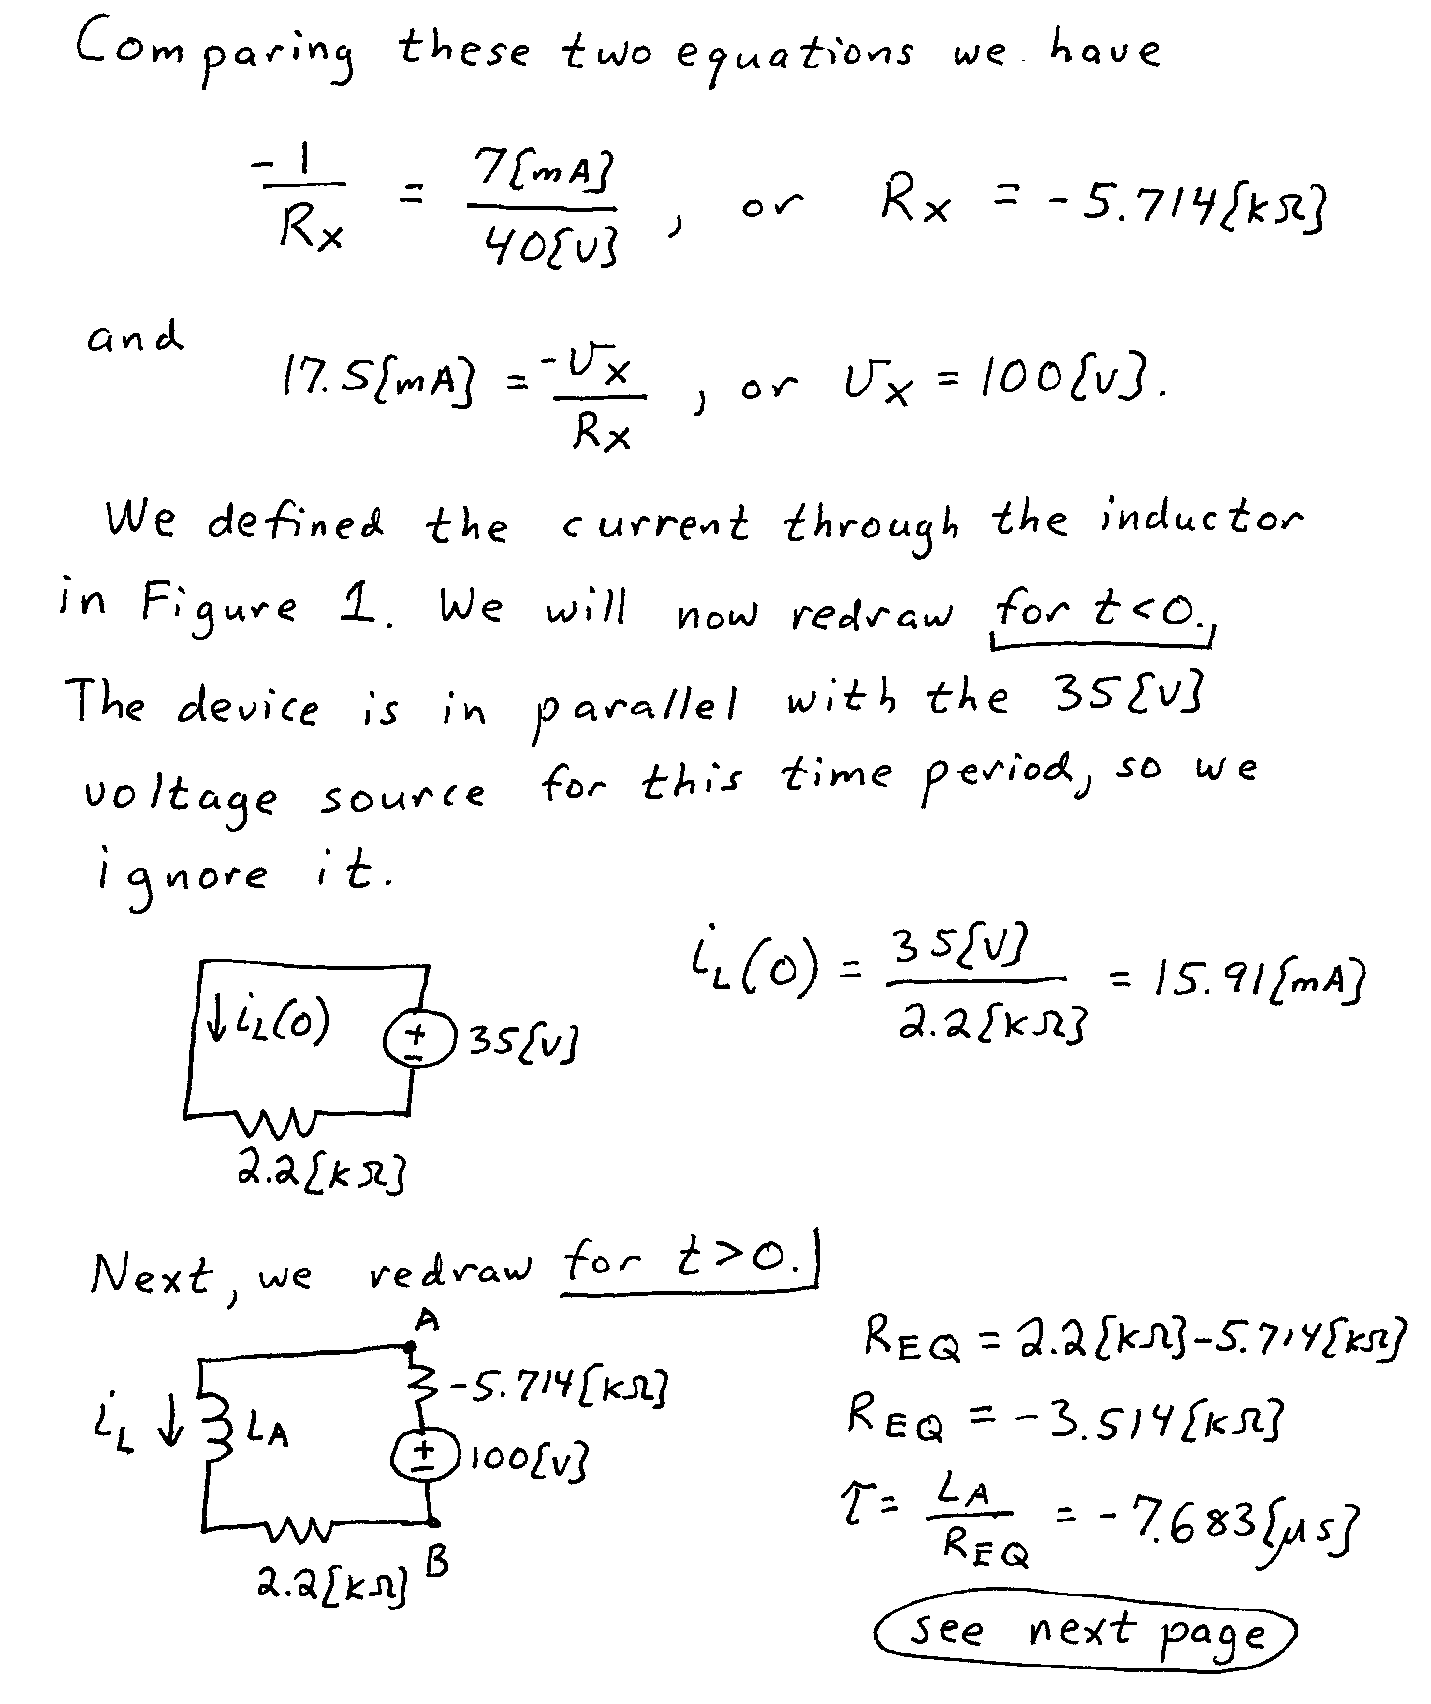 Comparing these two equations we have
-1/Rx = 7[mA]/40[V], or Rx = -5.714[kΩ]
and
17.5[mA] = -vx/Rx, or vx = 100[V].
We defined the current through the inductor
in Figure 1. We will now redraw for t<0.
The device is in parallel with the 35[V]
voltage source for this time period, so we
ignore it.
iL(0) = 35[V]/2.2[kΩ] = 15.91[mA]
iL(0)
+
-
35[V]
2.2[kΩ]
Next, we redraw for t>0.
A
-5.714[kΩ]
iL
LA
+
-
100[V]
2.2[kΩ]
B
REQ = 2.2[kΩ]-5.714[kΩ]
REQ = -3.514[kΩ]
τ = LA/REQ = -7.683[μs]
see next page